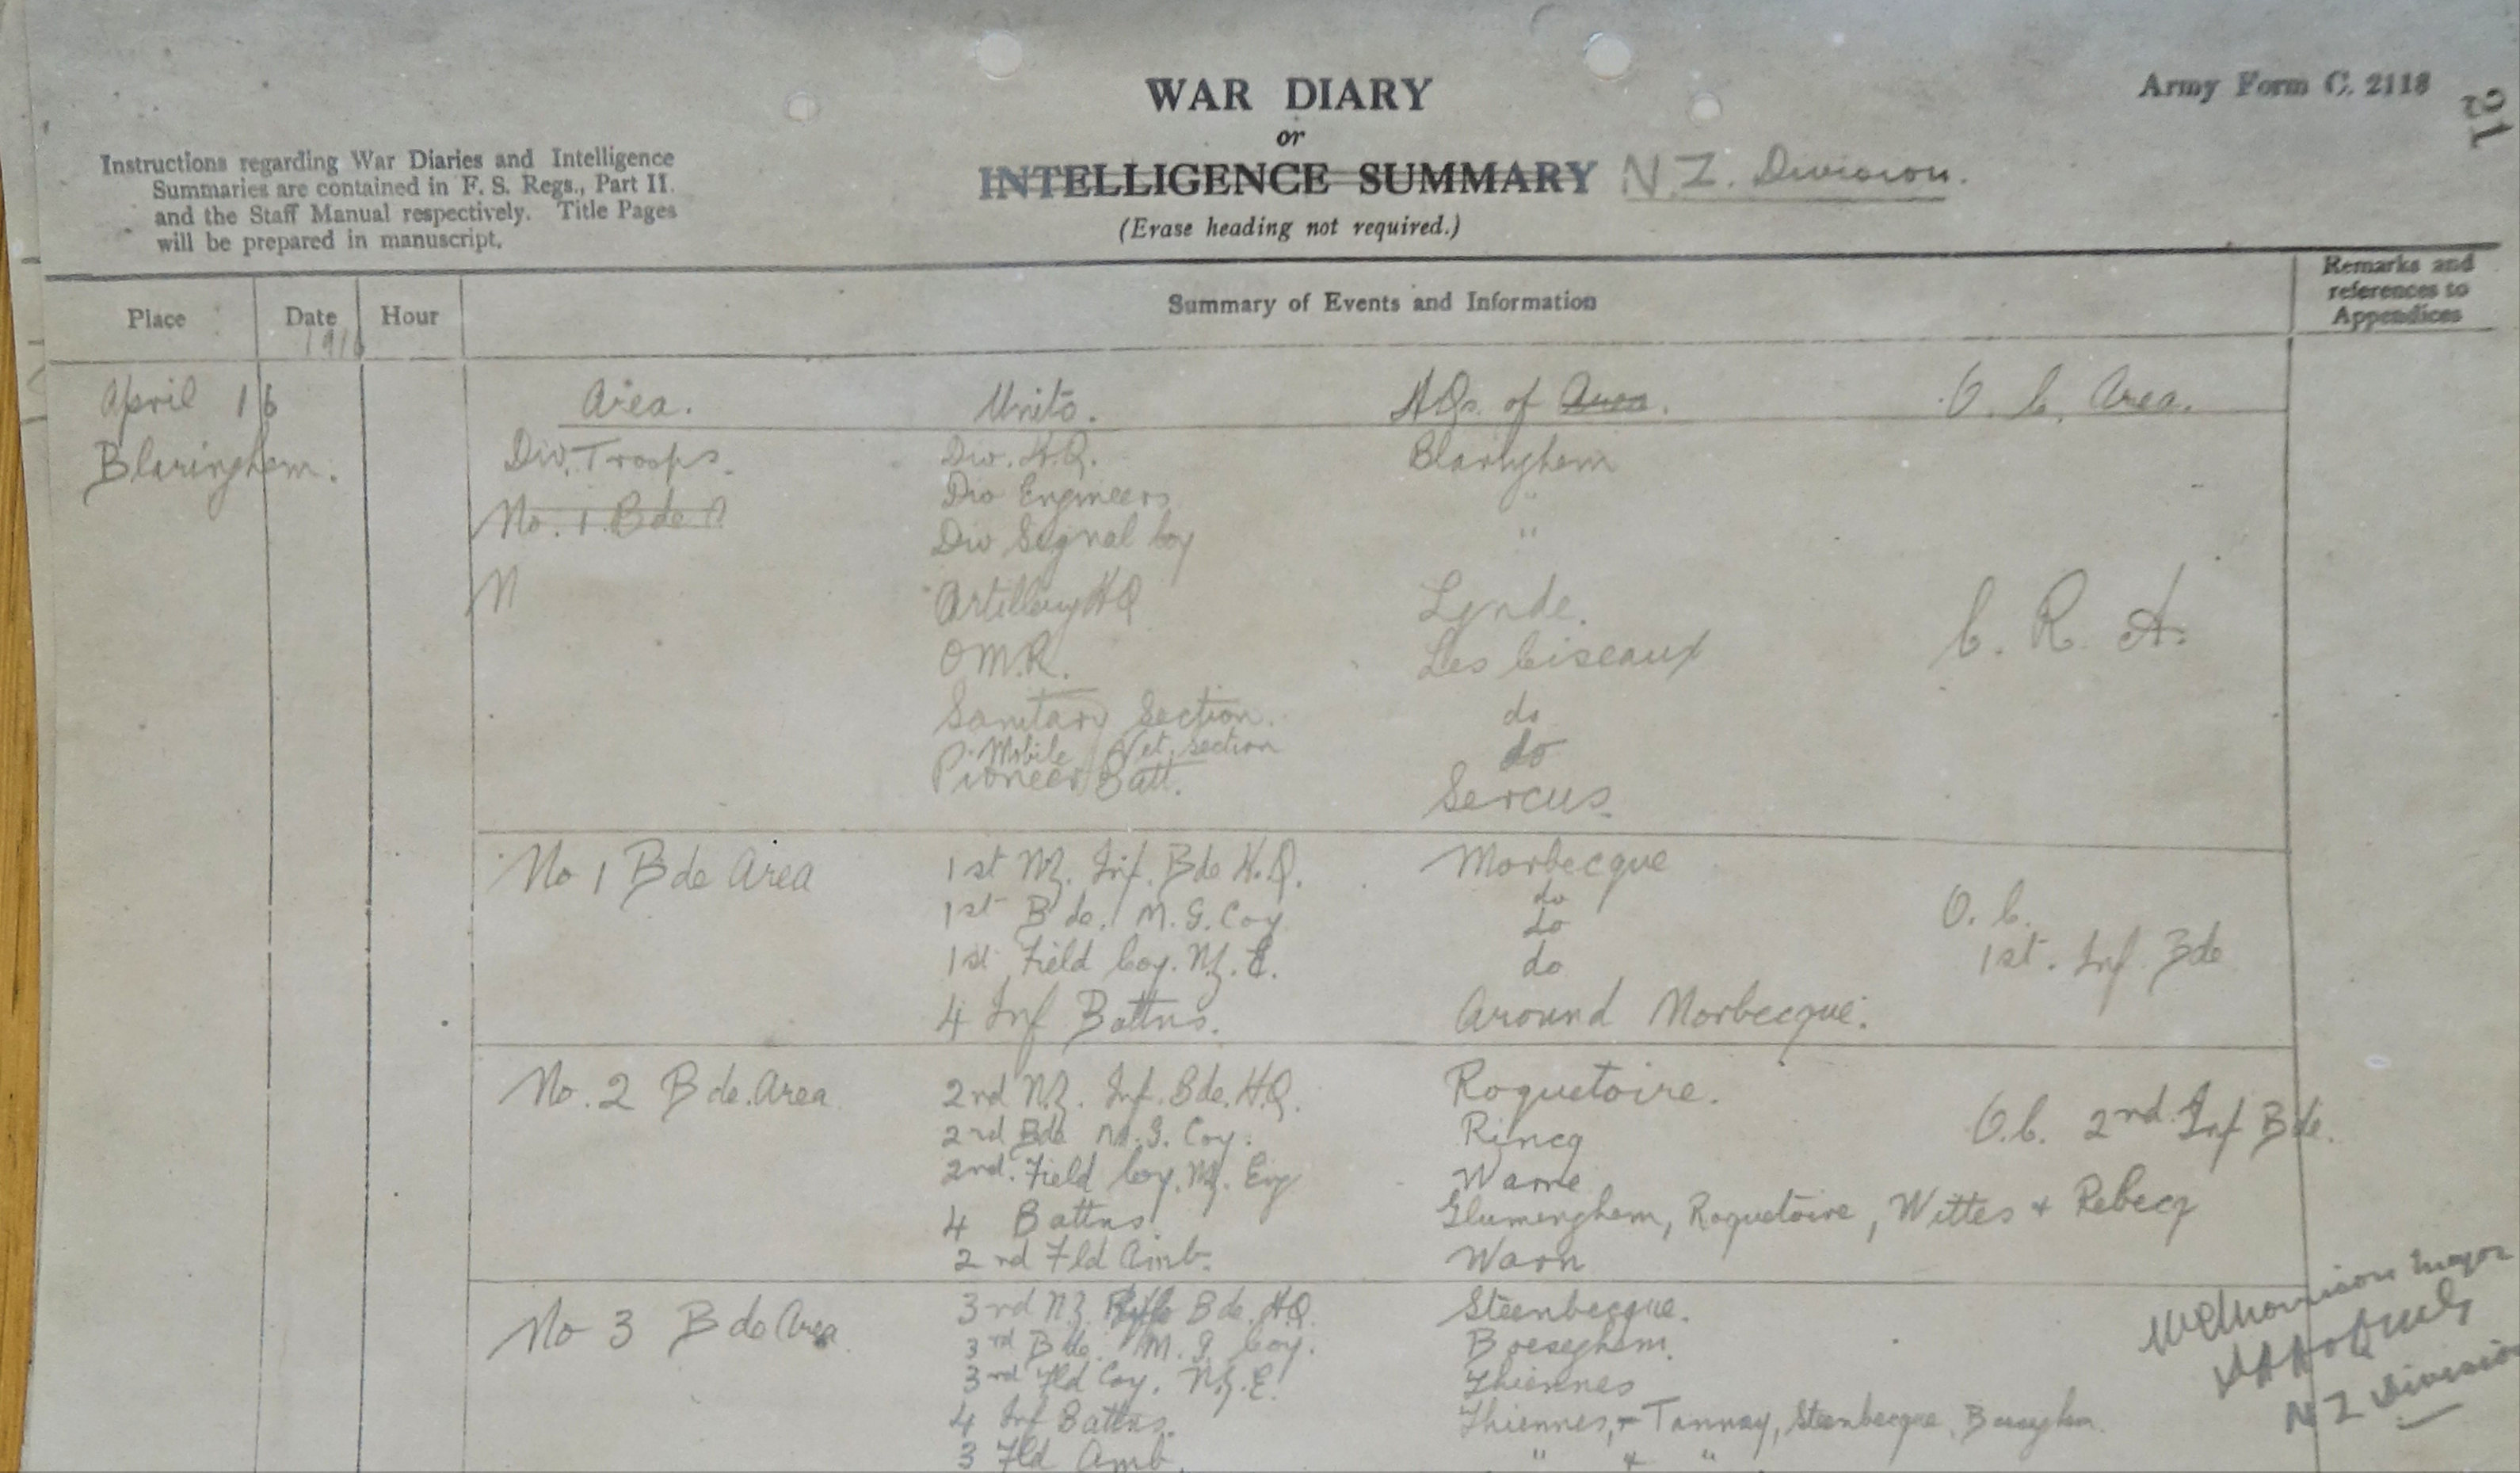 WAR DIARY
or
INTELLIGENCE SUMMARY N.Z. Division.
(Erase heading not required.)
Army Form C. 2118
21
Instructions regarding War Diaries and Intelligence
Summaries are contained in F. S. Regs., Part II.
and the Staff Manual respectively. Title Pages
will be prepared in manuscript.
Place Date Hour Summary of Events and Information Remarks and references to Appendices
1916
April 16 Area. Units. H.Qs. of Area. O. C. Area.
Blaringhem. Div. Troops. Div. H.Q. Blaringhem
Div Engineers "
No. 1. Bde A
Div Signal Coy "
N Artillery HQ Lynde. C. R. A.
O.M.R. Les Ciseaux
Sanitary Section. do
Mobile Vet. section do
Pioneer Batt. Sercus.
No 1 Bde Area 1st N.Z. Inf. Bde H.Q. Morbecque
do
1st Bde. M. G. Coy do O. C.
1st Field Coy. N.Z. E. do 1st. Inf. Bde
4 Inf Battns. Around Morbecque.
No. 2 Bde. Area 2nd N.Z. Inf. Bde. H.Q. Roquetoire.
2nd Bde M. G. Coy. Rincq O.C. 2nd. Inf Bde.
2nd. Field Coy. N.Z. Eng Warne
4 Battns. Glumenghem, Roquetoire, Wittes + Rebecq
2nd Fld Amb. Warn
No 3 Bde Area 3rd N.Z. Rifle Bde. H.Q. Steenbecque.
3rd Bde. M. G. Coy. Boeseghem.
3rd Fld Coy. N.Z.E. Thiennes
4 Inf Battns. Thiennes, + Tannay, Steenbecque,
3 Fld Amb. " + "
Major
N Z Division